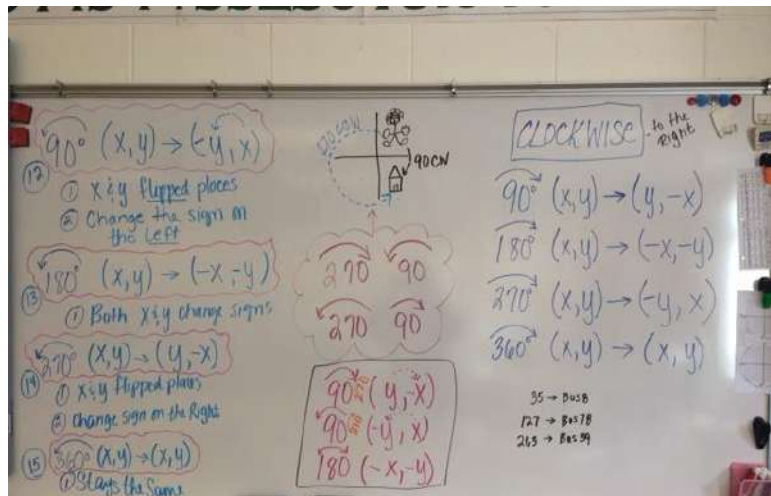 90° (x,y) → (-y, x)
12
① x & y flipped places
② Change the sign on
the Left
180° (x,y) → (-x,-y)
13
① Both x & y change signs
270° (x,y) → (y,-x)
14
① x & y flipped places
② Change sign on the Right
15
360° (x,y) → (x,y)
① Stays the Same
90CW
270 90
270 90
90 270 (y,-x)
90 (-y, x)
180 (-x,-y)
CLOCKWISE - to the
Right
90° (x,y) → (y,-x)
180° (x,y) → (-x,-y)
270° (x,y) → (-y, x)
360° (x,y) → (x, y)
35 → Bus8
127 → Bus78
263 → Bus39